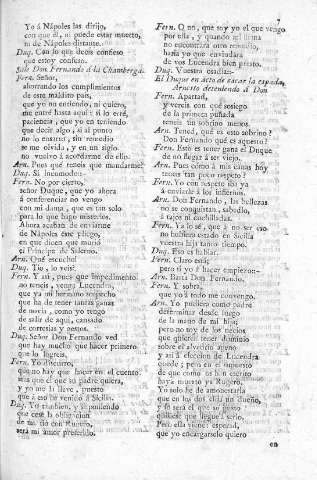 7
Yo á Nápoles las dirijo,
con que él, ni puede estar muerto,
ni de Nápoles distante.
Duq. Con lo que decis confieso
que estoy confuso.
Sale Don Fernando á la Chamberga.
Fern. Señor,
ahorrando los cumplimientos
de este maldito pais,
que yo no entiendo, ni quiero,
me entré hasta aqui: si lo erré,
paciencia; que yo en teniendo
que decir algo, si al punto
no lo ensarto, sin remedio
se me olvida, y en un siglo
no vuelvo á acordarme de ello.
Arn. Pues qué teneis que mandarme?
Duq. Si incomodo:-
Fern. No por cierto,
señor Duque, que yo ahora
á conferenciar no vengo
con mi dama, que es tan solo
para lo que hago misterios.
Ahora acaban de enviarme
de Nápoles este pliego,
en que dicen que murió
el Principe de Salerno.
Arn. Qué escucho!
Duq. Tio, lo veis?
Fern. Y asi, pues que impedimento
no teneis, venga Lucendra,
que ya mi hermano dispuesto
que ha de tener tantas ganas
de novia, como yo tengo
de salir de aqui, cansado
de cortesias y gestos.
Duq. Señor Don Fernando ved
que hay mucho que hacer primero
que lo logreis.
Fern. Yo discurro,
que no hay que hacer en el cuento
mas que el que su padre quiera,
y yo me la lleve, puesto
que á eso he venido á Sicilia.
Duq. Yo tambien, y suponiendo
que cese la obligacion
de mi tio con Rugero,
será mi amor preferido.
Fern. O no, que soy yo el que vengo
por ella, y quando mi dama
no encontrara otro remedio,
haria yo que enviudara
de vos Lucendra bien presto.
Duq. Vuestra osadia:-
El Duque en acto de sacar la espada,
Arnesto deteniendo á Don
Fern. Apartad,
y vereis con qué sosiego
de la primera puñada
teneis un sobrino menos.
Arn. Tened, qué es esto sobrino?
Don Fernando qué es aquesto?
Fern. Esto es tener gana el Duque
de no llegar á ser viejo.
Arn. Pues cómo á mis canas hoy
teneis tan poco respeto?
Fern. Yo con respeto iba ya
á enviarle á los infiernos.
Arn. Don Fernando, las bellezas
no se conquistan, sabedlo,
á tajos ni cuchilladas.
Fern. Ya lo sé, que á no ser eso
no hubiera estado en Sicilia
vuestra hija tanto tiempo.
Duq. Eso es hablar.
Fern. Claro está;
pero si yo á hacer empiezo:-
Arn. Basta Don Fernando.
Fern. Y sobra,
que yo á todo me convengo.
Arn. Yo pudiera como padre
determinar desde luego
de la mano de mi hija;
pero no soy de los necios
que quieren tener dominio
sobre el alvedrio ageno
y asi á eleccion de Lucendra
quede; pero en el supuesto
de que como os han escrito
haya muerto ya Rugero.
Yo solo he de amonestarla
que en los dos elija un dueño,
y ese será el que su gusto
quisiese que llegue á serlo.
Pero ella viene: esperad,
que yo encargarselo quiero
en